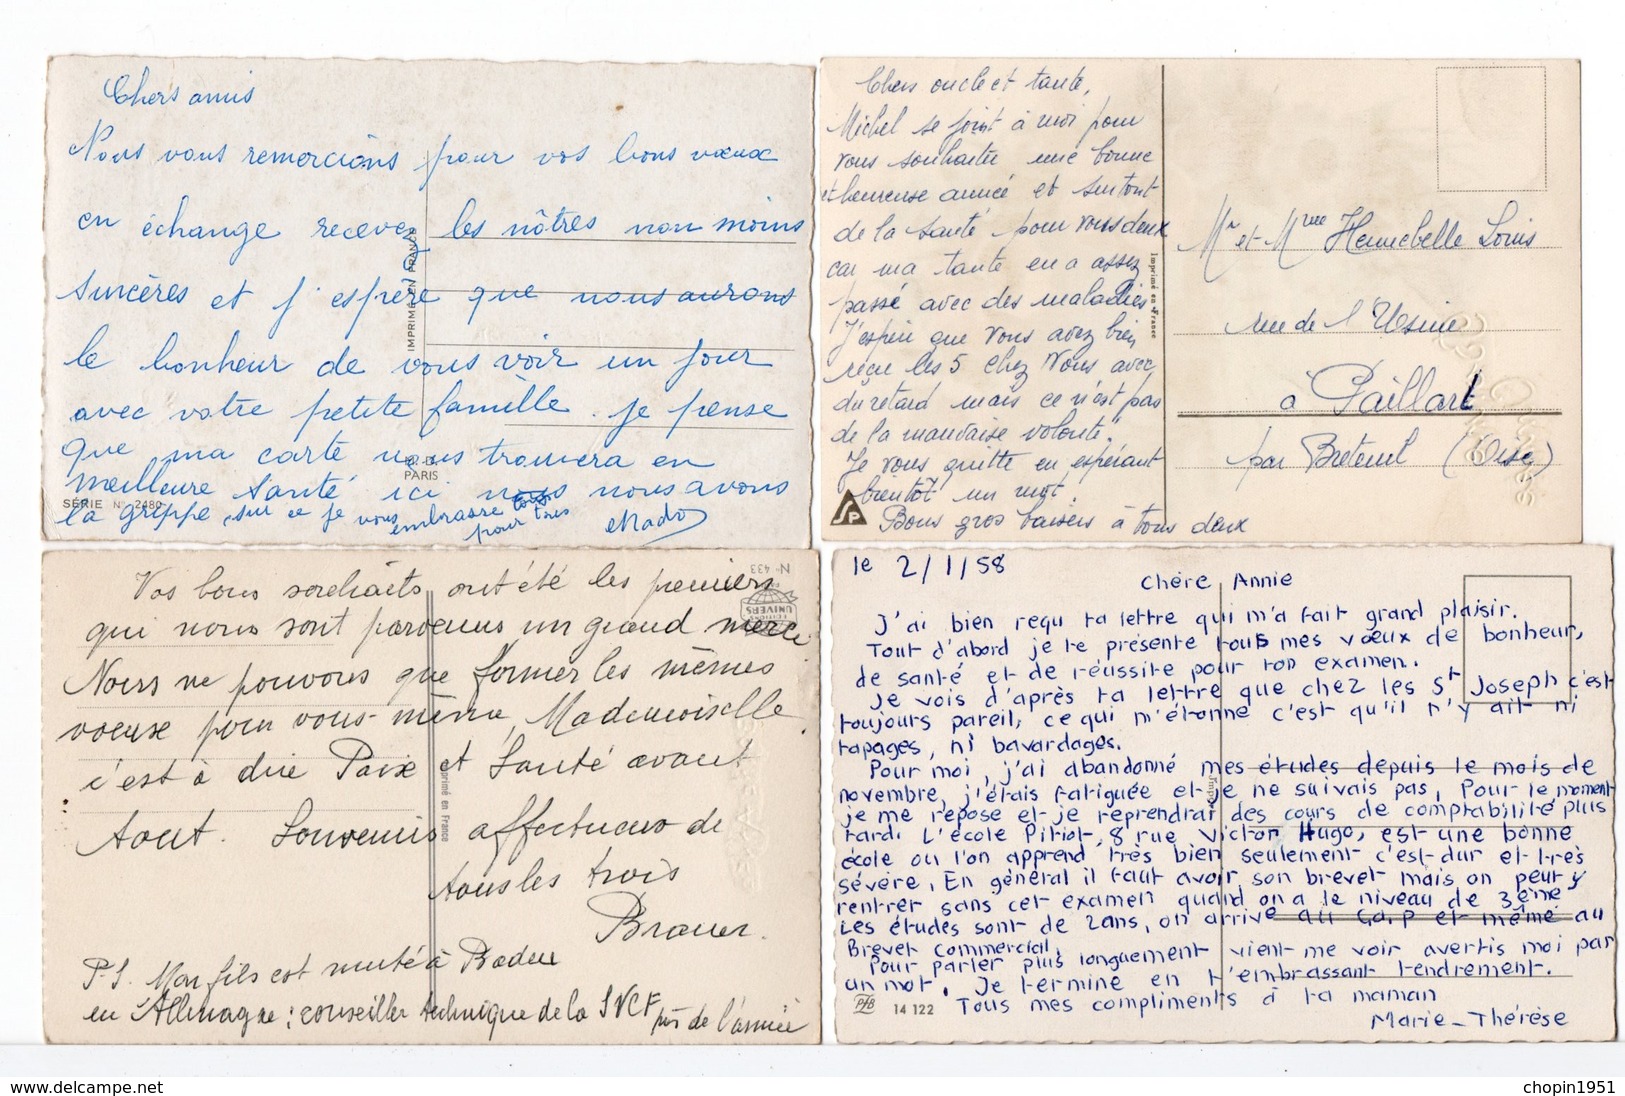 Chers amis
Nous vous remercions pour vos bons vœux
en échange recevez les nôtres non moins
sincères et j'espère que nous aurons
le bonheur de vous voir un jour
avec votre petite famille. je pense
que ma carte vous trouvera en
meilleure santé ici nous nous avons
la grippe, sur ce je vous embrasse tous
pour tous
IMPRIMÉ EN FRANCE
PARIS
SÉRIE N° 2480
Chers oncle et tante,
Michel se joint à moi pour
vous souhaiter une bonne
et heureuse année et surtout
de la santé pour vous deux
car ma tante en a assez
passé avec des maladies
J'espère que vous avez bien
reçu les 5 chez vous avec
du retard mais ce n'est pas
de la mauvaise volonté.
Je vous quitte en espérant
bientôt un mot.
Bons gros baisers à tous deux
Imprimé en France
SP
Mr et Mme Hennebelle Louis
rue de l'Usine
à Paillart
par Breteuil (Oise)
N° 433
EDITIONS
UNIVERS
Vos bons souhaits ont été les premiers
qui nous sont parvenus un grand merci
Nous ne pouvons que former les mêmes
voeux pour vous-même, Mademoiselle
c'est à dire Paix et Santé avant
tout. Souvenirs affectueux de
tous les trois
P.S. Mon fils est muté à Baden
en Allemagne : conseiller technique de la SNCF près de l'armée
Imprimé en France
le 2/1/58
Chère Annie
J'ai bien reçu ta lettre qui m'a fait grand plaisir.
Tout d'abord je te présente tous mes vœux de bonheur,
de santé et de réussite pour ton examen.
Je vois d'après ta lettre que chez les St Joseph c'est
toujours pareil, ce qui m'étonne c'est qu'il n'y ait ni
tapages, ni bavardages.
Pour moi, j'ai abandonné mes études depuis le mois de
novembre, j'étais fatiguée et je ne suivais pas. Pour le moment
je me repose et je reprendrai des cours de comptabilité plus
tard. L'école Pitiot, 8 rue Victor Hugo, est une bonne
école ou l'on apprend très bien seulement c'est dur et très
sévère. En général il faut avoir son brevet mais on peut y
rentrer sans cet examen quand on a le niveau de 3ème
Les études sont de 2ans, on arrive au C.a.p et même au
Brevet commercial.
Pour parler plus longuement vient me voir avertis moi par
un mot. Je termine en t'embrassant tendrement.
Tous mes compliments à ta maman
Marie-Thérèse
14 122
delcampe.net
chopin1951